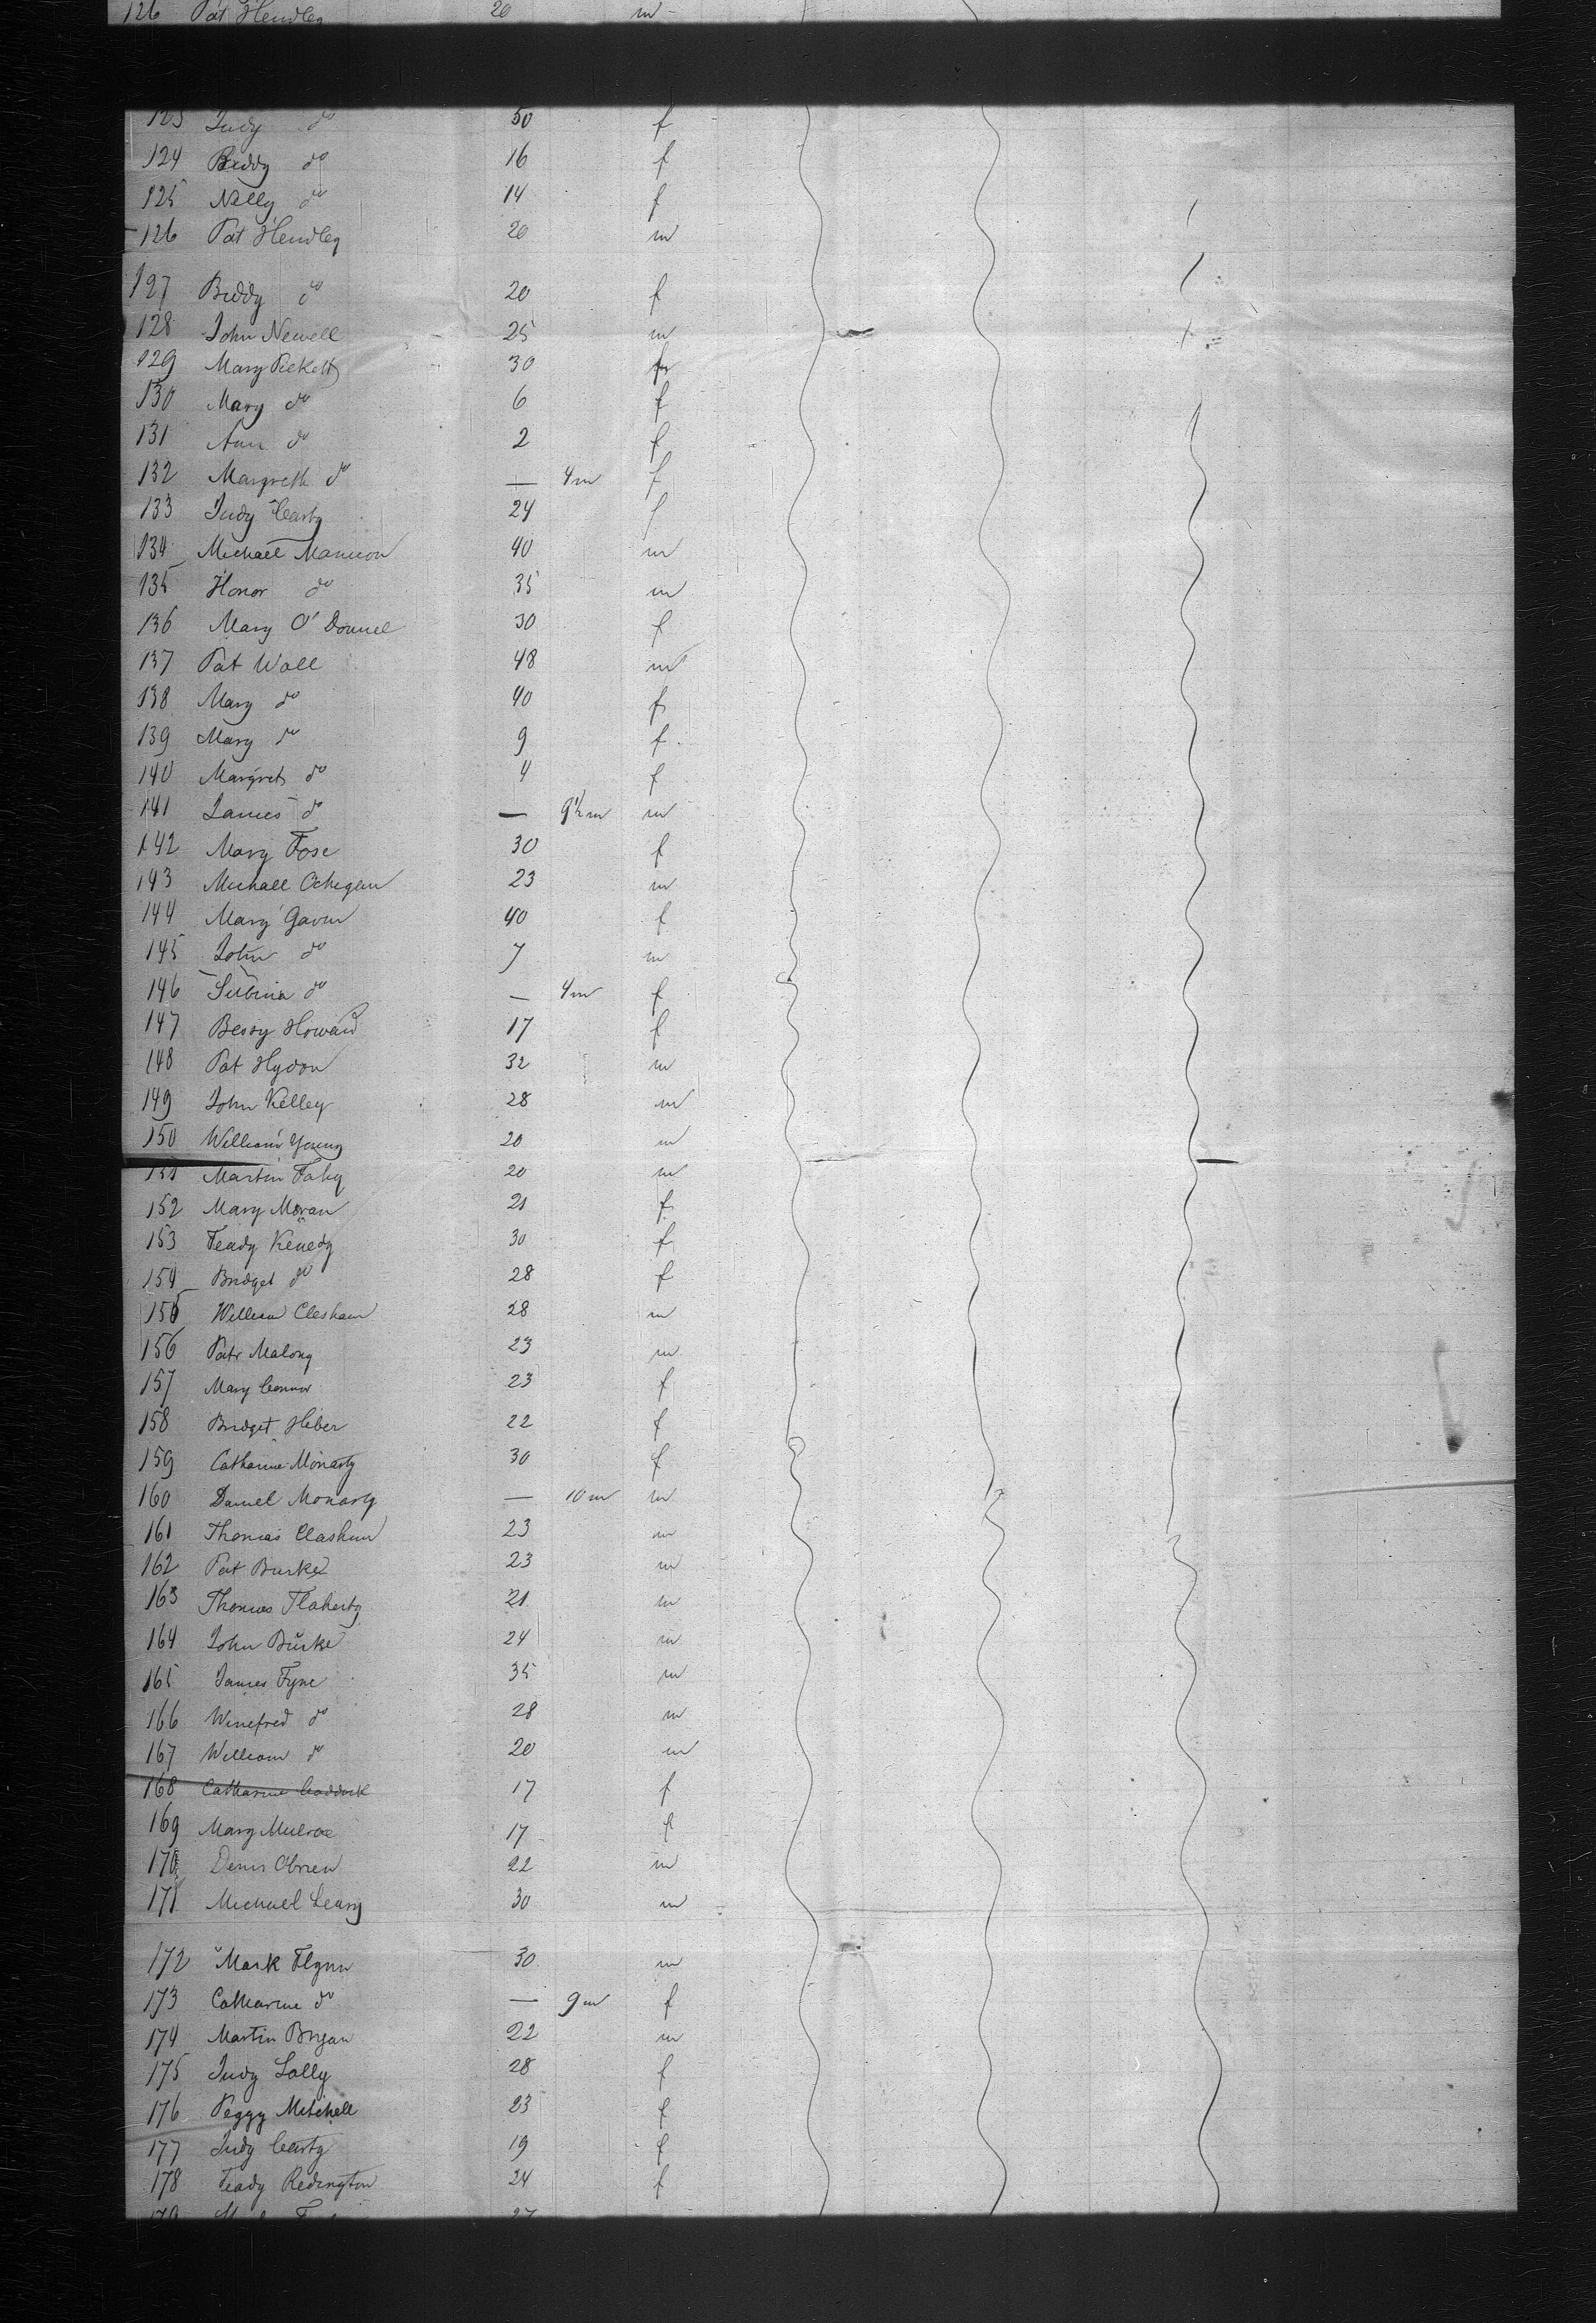 126 Pat Hendley 20 m
123 Judy do 50 f
124 Biddy do 16 f
125 Nelly do 14 f
126 Pat Hendley 20 m
127 Biddy do 20 f
128 John Newell 25 m
129 Mary Pickett 30 f
130 Mary do 6 f
131 Ann do 2 f
132 Margreth do — 4m f
133 Judy Carty 24 f
134 Michael Mannion 40 m
135 Honor do 35 m
136 Mary O'Donnel 30 f
137 Pat Wall 48 m
138 Mary do 40 f
139 Mary do 9 f
140 Margret do 4 f
141 James do — 9½m m
142 Mary Fose 30 f
143 Michael 23 m
144 Mary Gavin 40 f
145 John do 7 m
146 Sibina do — 4m f
147 Bessy Howard 17 f
148 Pat Hydon 32 m
149 John Kelley 28 m
150 William Young 20 m
151 Martin Fahy 20 m
152 Mary Moran 21 f
153 Teady Kenedy 30 f
154 Bridget do 28 f
155 William Clesham 28 m
156 Patr Malony 23 m
157 Mary Connor 23 f
158 Bridget Heber 22 f
159 Catharine Monarty 30 f
160 Daniel Monarty — 10m m
161 Thomas Clashum 23 m
162 Pat Burke 23 m
163 Thomas Flaherty 21 m
164 John Burke 24 m
165 James Fyne 35 m
166 Winefred do 28 m
167 William do 20 m
168 Catharine Caddick 17 f
169 Mary Mulroe 17 f
170 Denis Obrien 22 m
171 Michael Leary 30 m
172 Mark Flynn 30 m
173 Catharine do — 9m f
174 Martin Bryan 22 m
175 Judy Lally 28 f
176 Peggy Mitchell 23 f
177 Judy Carty 19 f
178 Teady Redington 24 f
179 27